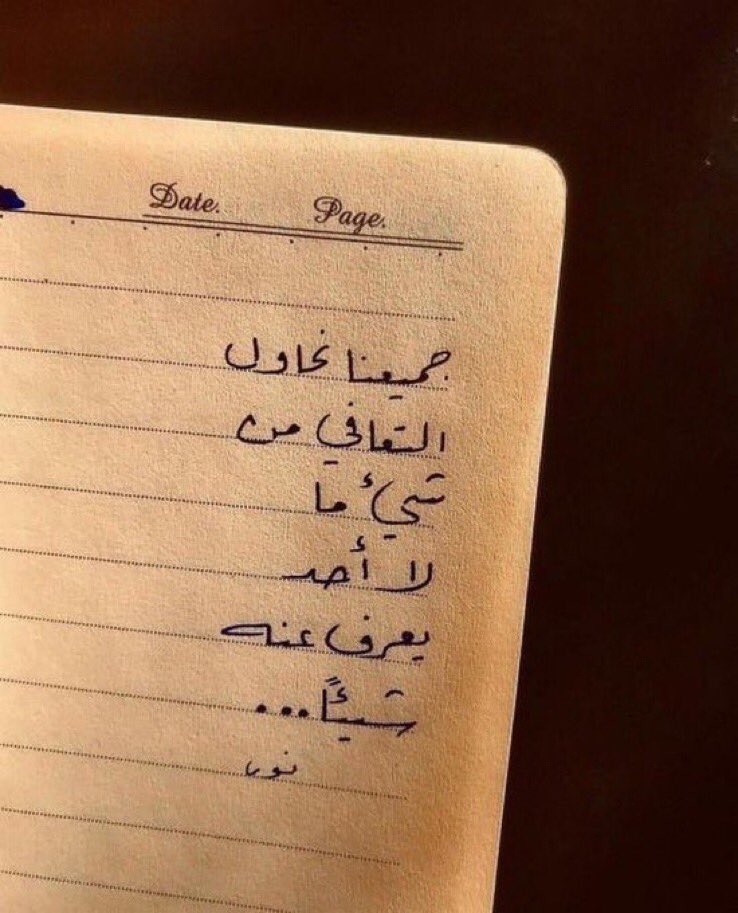 Date. Page.
جميعنا نحاول
التعافي من
شيء ما
لا أحد
يعرف عنه
شيئًا...
نور